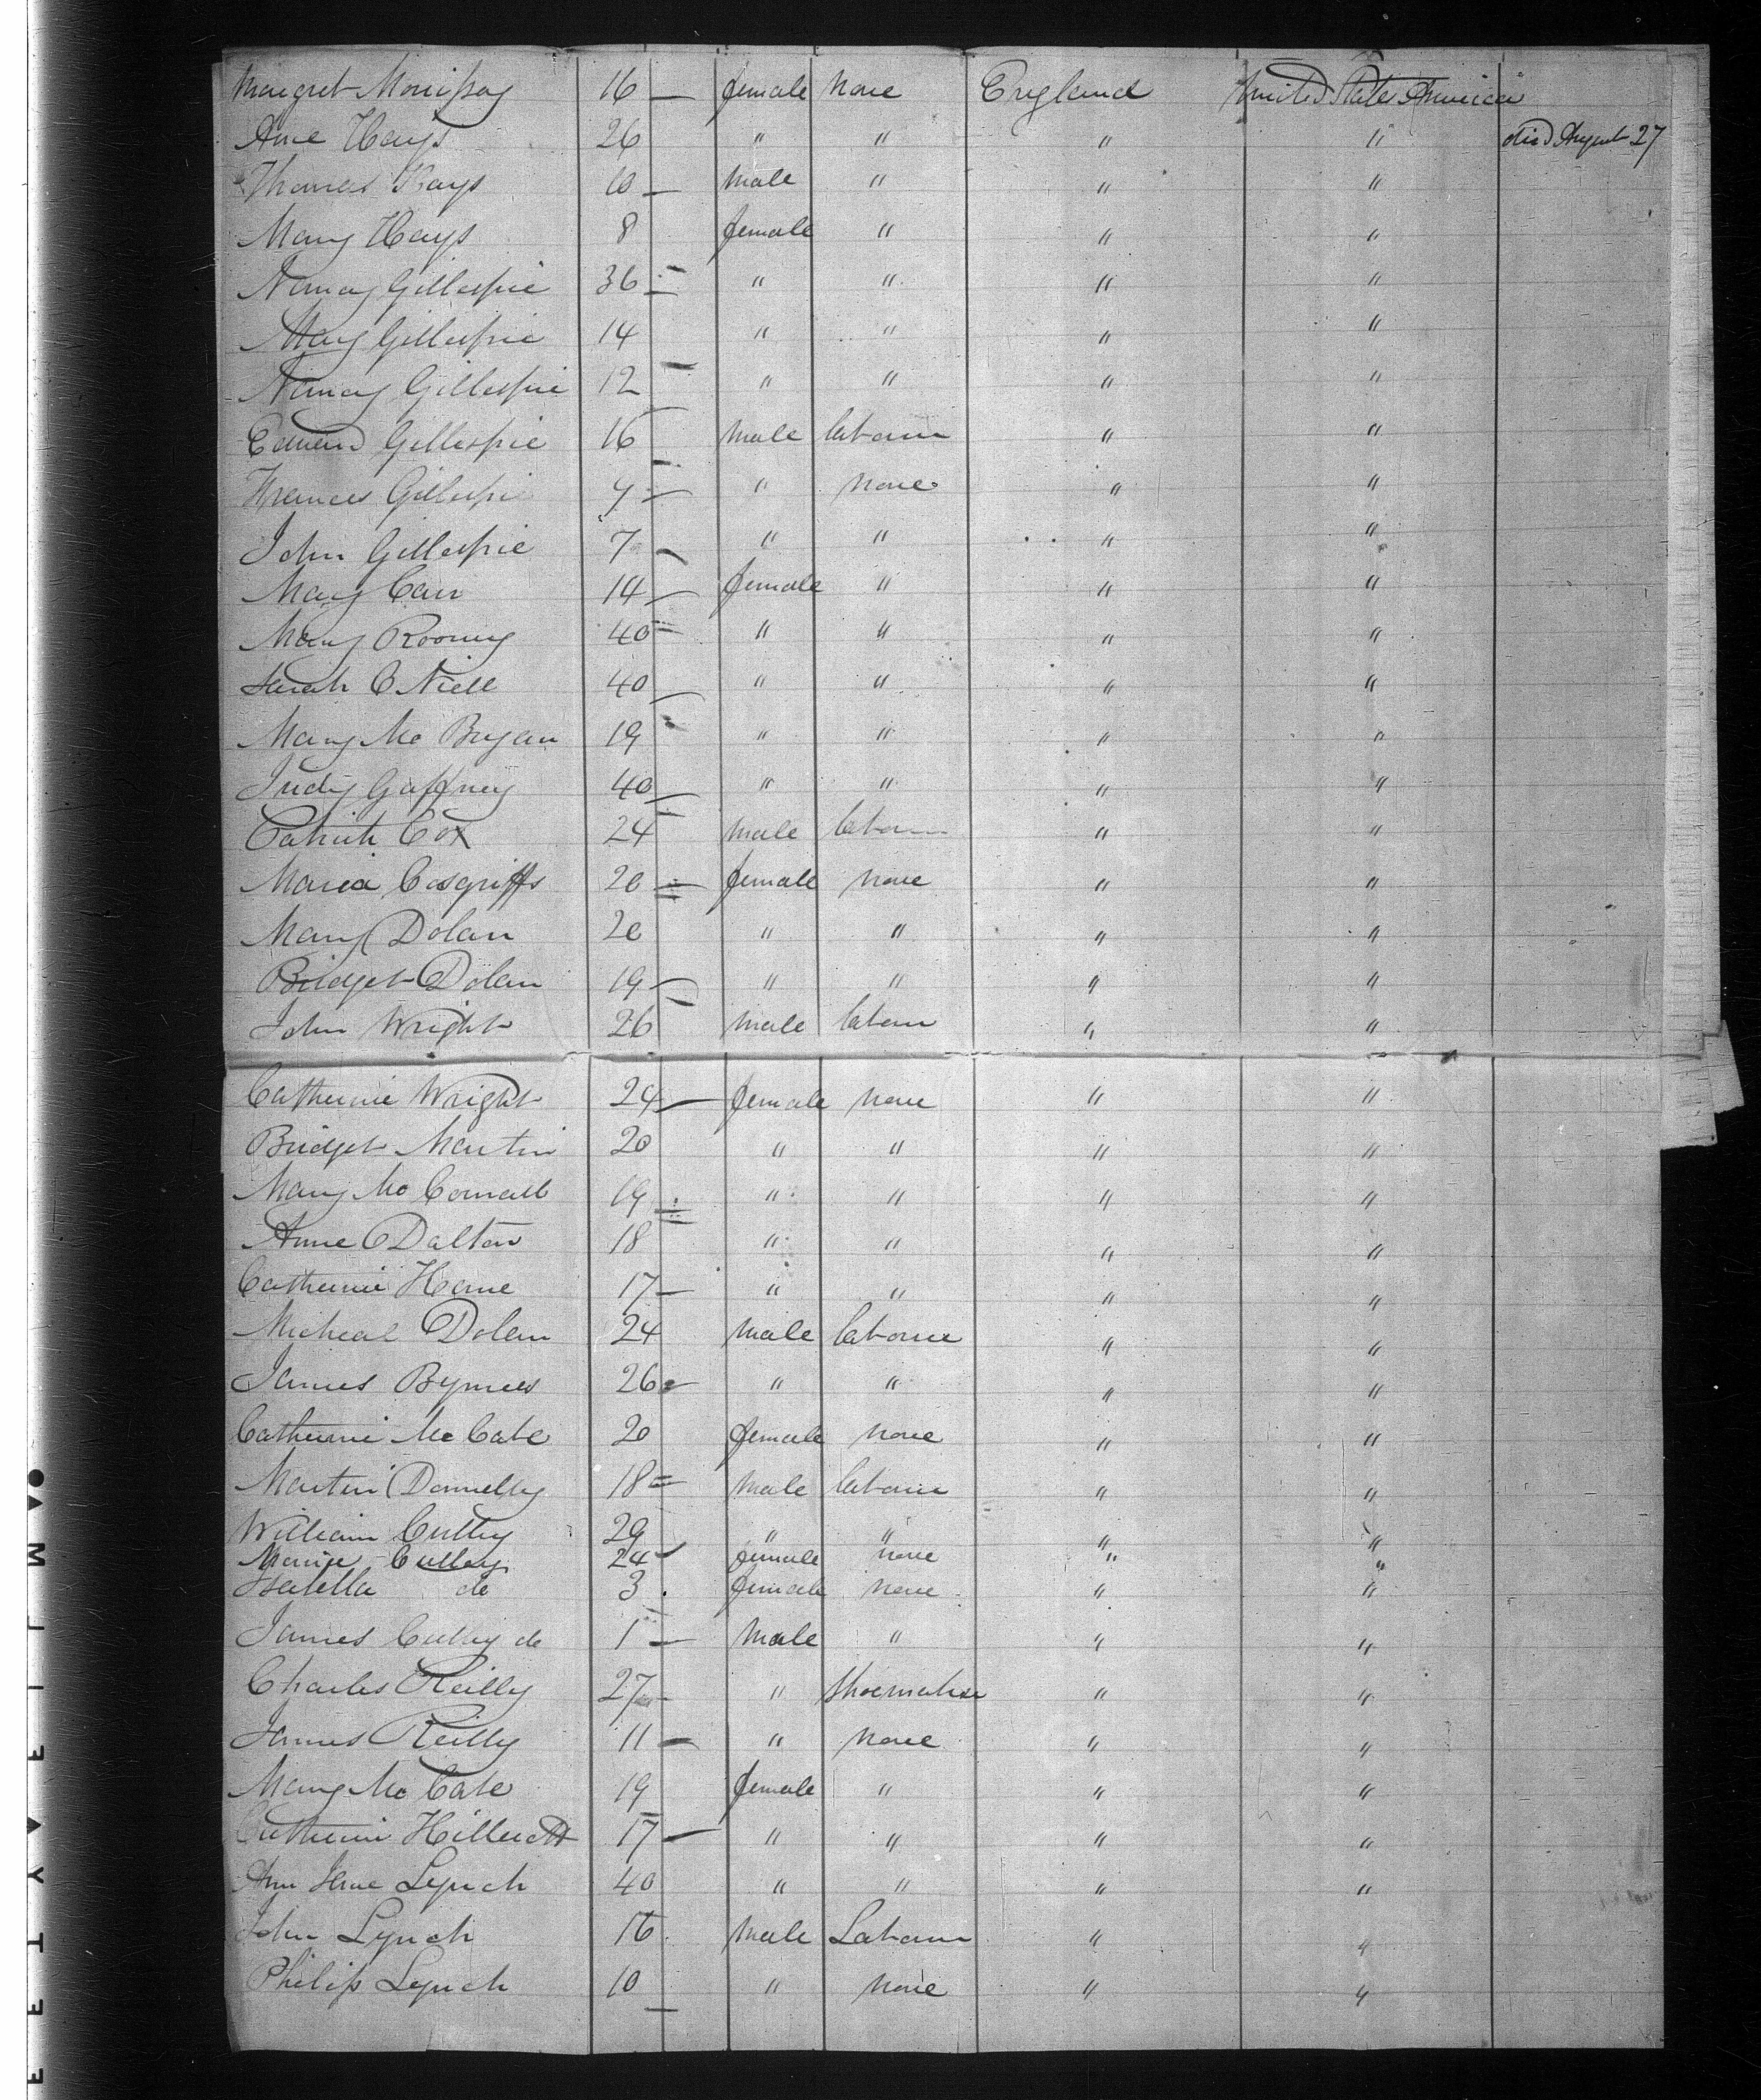 Margret Morrissy 16 — female none England United State America
Ane Hays 26 " " " " died August 27
Thomas Hays 10 — male " " "
Mary Hays 8 female " " "
Nancy Gillespie 36 = " " " "
Mary Gillespie 14 " " " "
Nancy Gillespie 12 " " " "
Edward Gillespie 16 male labour " "
Frances Gillespie 9 — " none " "
John Gillespie 7 — " " " "
Mary Carr 14 — female " " "
Mary Rooney 40 " " " "
Sarah O Niell 40 " " " "
Mary Mc Bryan 19 " " " "
Judy Gaffney 40 — " " " "
Patrick Cox 24 male labour " "
Maria Cosgriffs 20 = female none " "
Mary Dolan 20 " " " "
Bridget Dolan 19 — " " " "
John Wright 26 male labour " "
Catherine Wright 24 — female none " "
Bridget Martin 20 " " " "
Mary Mc Connall 19 " " " "
Anne Dalton 18 " " " "
Catherine Hane 17 — " " " "
Micheal Dolan 24 male labour " "
James Byrnes 26 " " " "
Catherine Mc Cabe 20 female none " "
Martin Donnelly 18 = male labour " "
William Culley 29 " " " "
Culley 24 female none " "
Isabella do 3 female none " "
James Culley do 1 — male " " "
Charles Reilly 27 " shoemaker " "
James Reilly 11 — " none " "
Mary Mc Cabe 19 female " " "
Catherine 17 — " " " "
Ann Jane Lynch 40 " " " "
John Lynch 16 male Labour " "
Philip Lynch 10 " none " "